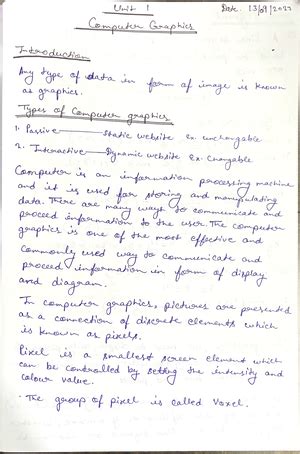 Unit 1
Date: 13/09/2023
Computer Graphics
Introduction
Any type of data in form of image is known
as graphics.
Types of Computer graphics
1. Passive Static website ex. unchangable
2. Interactive Dynamic website ex. changable
Computer is an information processing machine
and it is used for storing and manipulating
data. There are many ways to communicate and
proceed information to the user. The computer
graphics is one of the most effective and
commonly used way to communicate and
proceed information in form of display
and diagram.
In computer graphics, pictures are presented
as a connection of discrete elements which
is known as pixels.
Pixel is a smallest screen element which
can be controlled by setting the intensity and
colour value.
· The group of pixel is called Voxel.